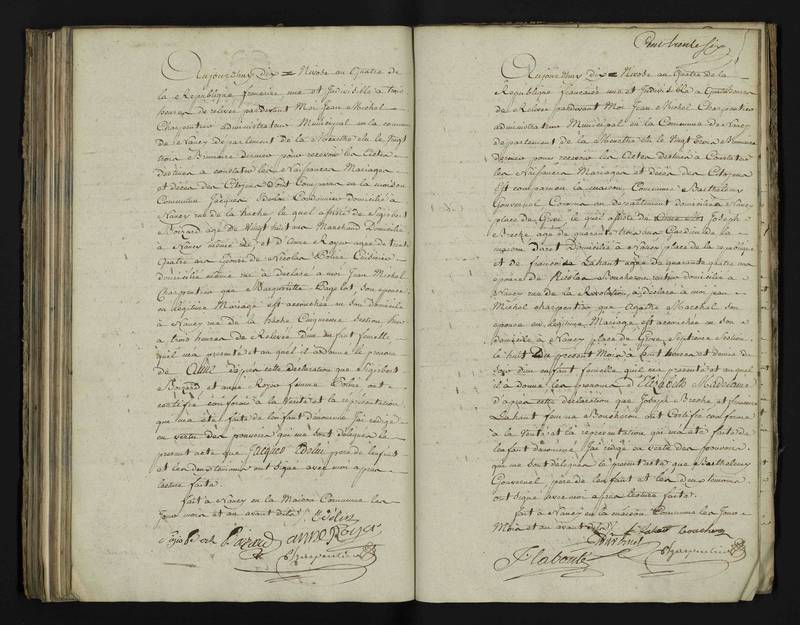 Aujourd'huy dix Nivose an Quatre de
la Republique francaise une et Indivisible a trois
heures de relevée pardevant Moi Jean Michel
Charpentier administrateur Municipal de la commune
de Nancy departement de la Meurthe elu le Vingt
trois Brumaire dernier pour recevoir les Actes
destinés a constater les Naissances Mariages
et décès des Citoyens Est Comparu en la maison
Commune Jacques Cordonnier domicilié a
Nancy rue de la hache, le quel assisté de Sigisbert
agé de Vingt huit ans Marchand Domicilié
a Nancy et d'Anne Royer agée de trente
quatre ans Epouse de Nicolas
domiciliée même rue a déclaré a moi Jean Michel
Charpentier que Margueritte son epouse
en légitime Mariage est accouchée en son Domicile
a Nancy rue de la hache Cinquieme Section hier
a trois heures de Relevée d'un enfant femelle
qu'il m'a presenté et au quel il a donné le prenom
de Anne d'après cette déclaration que Sigisbert
et anne Royer femme ont
certifié conforme à la Verité et la représentation
qui m'a été faite de l'enfant dénommé J'ai rédigé
en vertu des pouvoirs qui me sont délégués le
present acte que Jacques père de l'enfant
et les deux temoins ont signé avec moi après
lecture faite.
fait à Nancy en la Maison Commune les
Jour mois et an avant dits
anne Royer
Charpentier
Cent trente six
Aujourd'huy dix Nivose an Quatre de la
Republique francaise une et Indivisible a Quatre heures
de Relevée pardevant Moi Jean Michel Charpentier
administrateur Municipal de la Commune de Nancy
departement de la Meurthe elu le Vingt Trois Brumaire
dernier pour recevoir les Actes destinés a Constater
les Naissances Mariages et décès des Citoyens
Est comparu en la maison Commune Barthelemy
domicilié a Nancy
place de Greve le quel assisté de Joseph
agé de quarante trois ans Gardien de la
maison Domicilié a Nancy place de la republique
et de francoise agée de quarante quatre ans
épouse de Nicolas Boucheron domiciliée a
Nancy rue de la Revolution, a declaré a moi Jean
Michel charpentier que Agathe Marechal son
epouse en légitime Mariage est accouchée en son
Domicile a Nancy place de Greve Septieme Section
le huit du present Mois a heures et demie de
Soir d'un enfant femelle qu'il m'a presenté et auquel
il a donné les prenoms d'Elisabeth Madelaine
d'après cette déclaration que Joseph et francoise
femme Boucheron ont Certifié conforme
a la Verité et la représentation qui m'a été faite de
l'enfant dénommé J'ai rédigé en vertu des pouvoirs
qui me sont délégués le present acte que Barthelemy
père de l'enfant et les deux temoins
ont signé avec moi après lecture faite.
fait à Nancy en la maison Commune les Jour
Mois et an avant dits
Charpentier